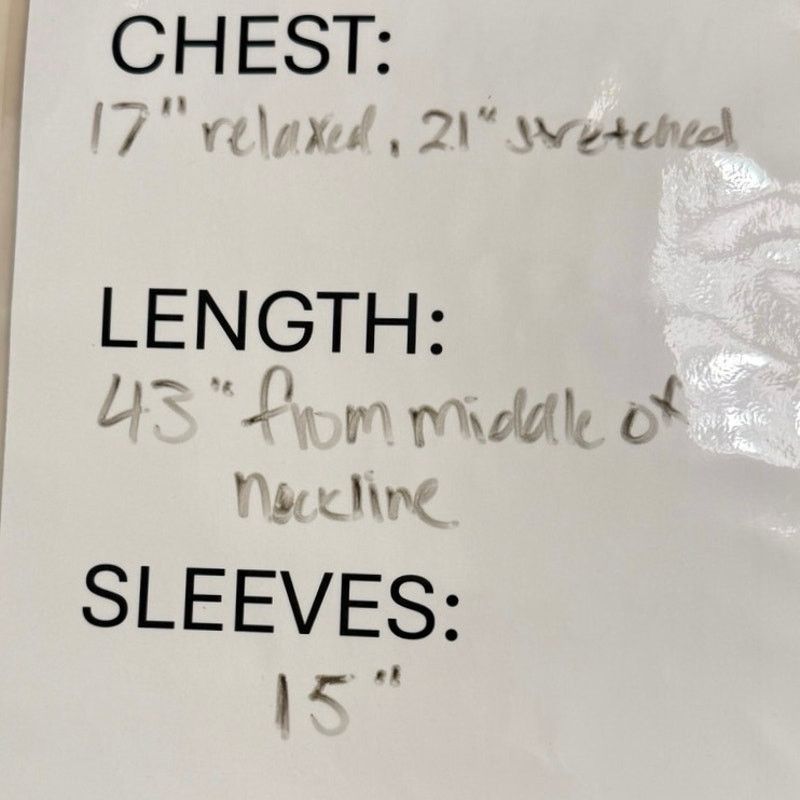 CHEST:
17" relaxed, 21" stretched
LENGTH:
43" from middle of
neckline
SLEEVES:
15"